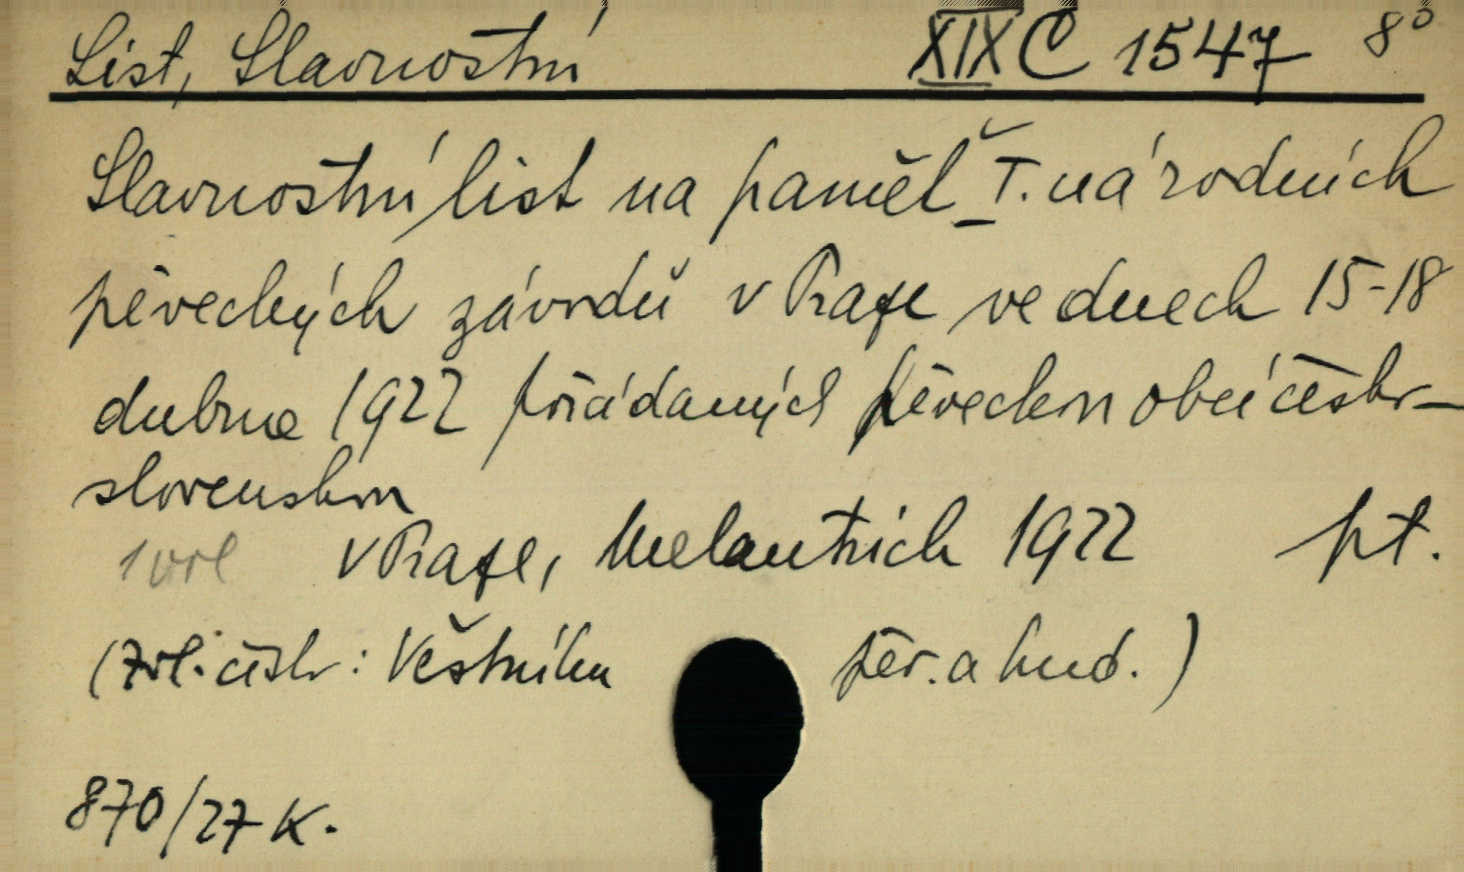 List, Slavnostní XIX C 1547 8°
Slavnostní list na paměť I. národních
pěveckých závodů v Praze ve dnech 15-18
dubna 1922 pořádaných Pěveckou obcí česko-
slovenskou
v Praze, Melantrich 1922 pt.
(Zvl. číslo: Věstníku pěv. a hud.)
870/27 K.